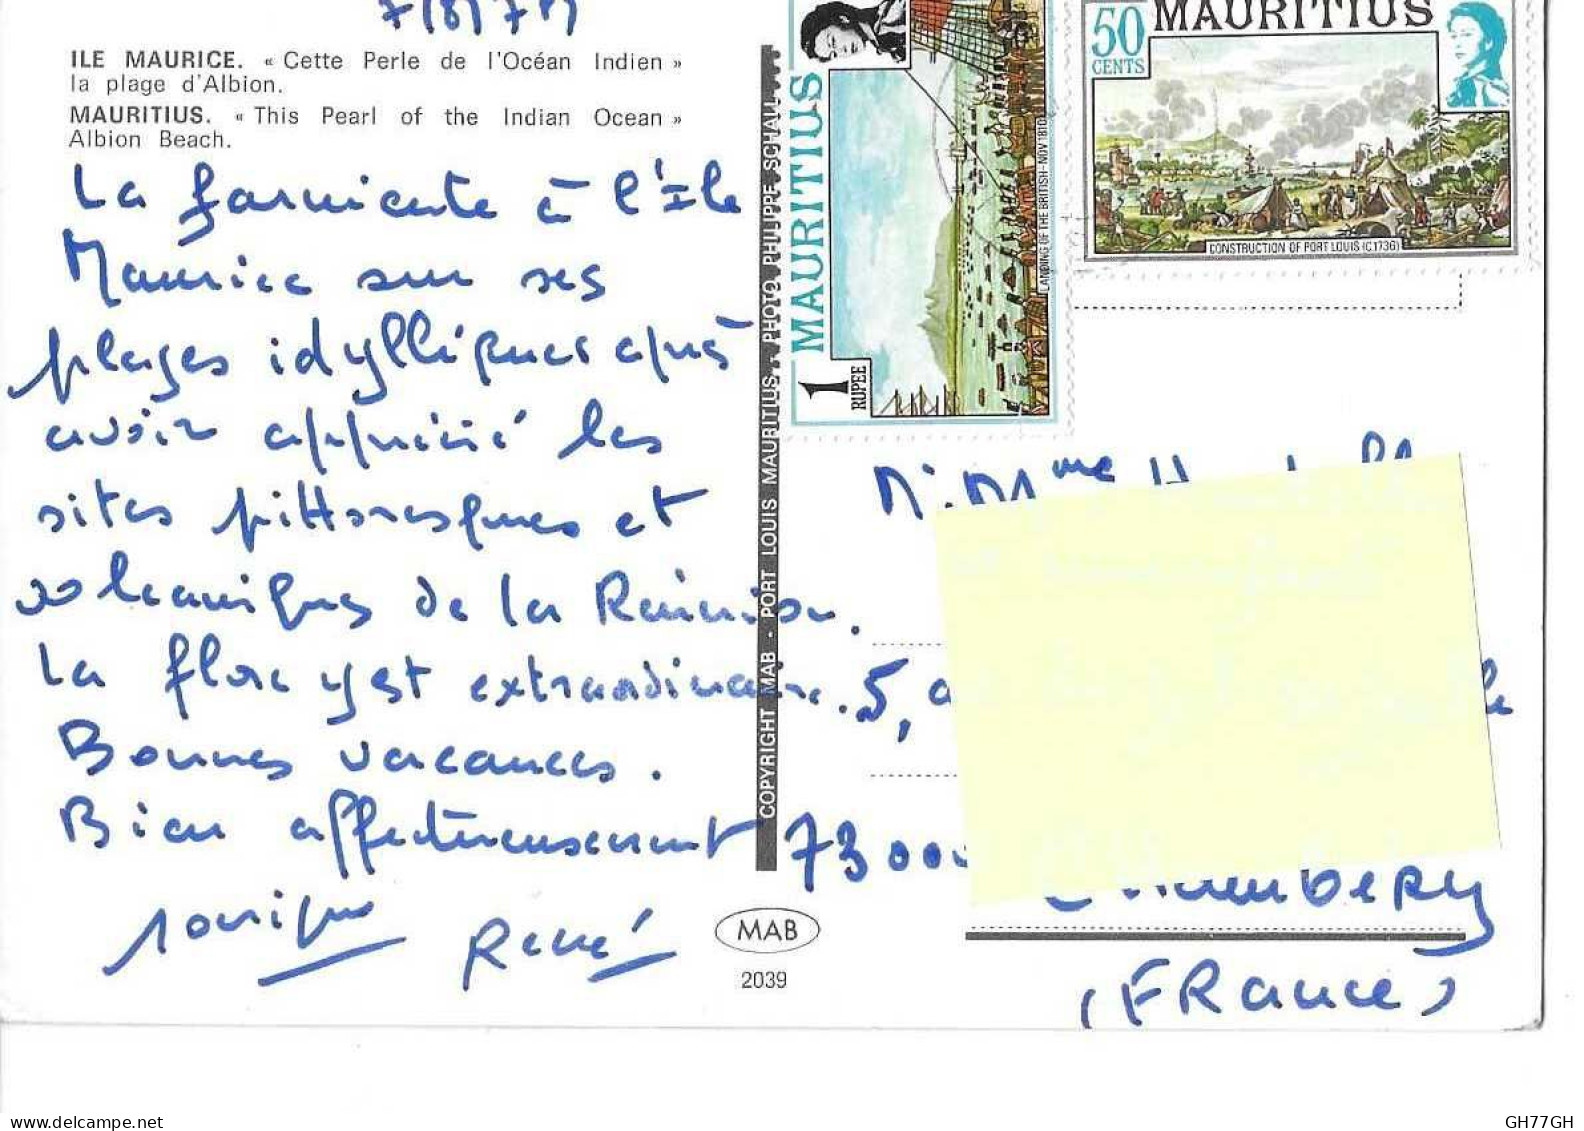 7/8/79
ILE MAURICE. « Cette Perle de l'Océan Indien »
la plage d'Albion.
MAURITIUS. « This Pearl of the Indian Ocean »
Albion Beach.
La farniente à l'Ile
Maurice sur ses
plages idylliques après
avoir apprécié les
sites pittoresques et
volcaniques de la Réunion.
La flore y est extraordinaire.
Bonnes vacances.
Bien affectueusement
René
COPYRIGHT MAB - PORT LOUIS MAURITIUS - PHOTO PHILIPPE SCHALL
MAB
2039
MAURITIUS
1
RUPEE
LANDING OF THE BRITISH - NOV 1810
50
CENTS
MAURITIUS
CONSTRUCTION OF PORT LOUIS (C.1736)
M. Mme
5,
73000
Chambery
(FRance)
GH77GH